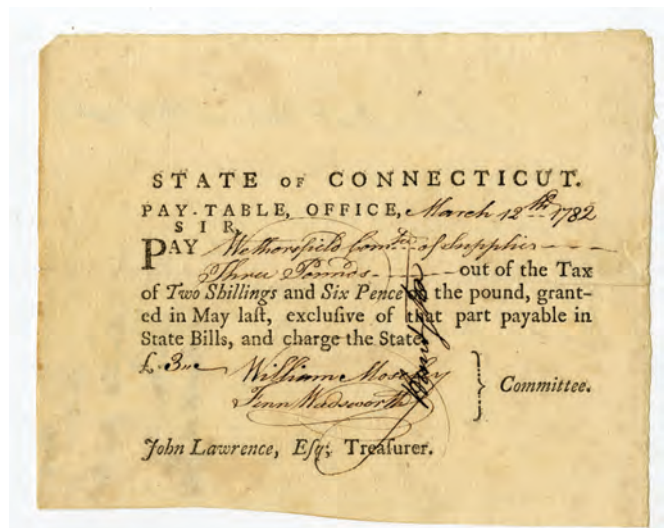 STATE OF CONNECTICUT.
PAY-TABLE, OFFICE, March 12th 1782
SIR,
PAY Wethersfield Comtee of Supplies
Three Pounds out of the Tax
of Two Shillings and Six Pence on the pound, grant-
ed in May laſt, excluſive of that part payable in
State Bills, and charge the State.
£.3
William Moseley
Fenn Wadsworth
} Committee.
John Lawrence, Eſq; Treaſurer.